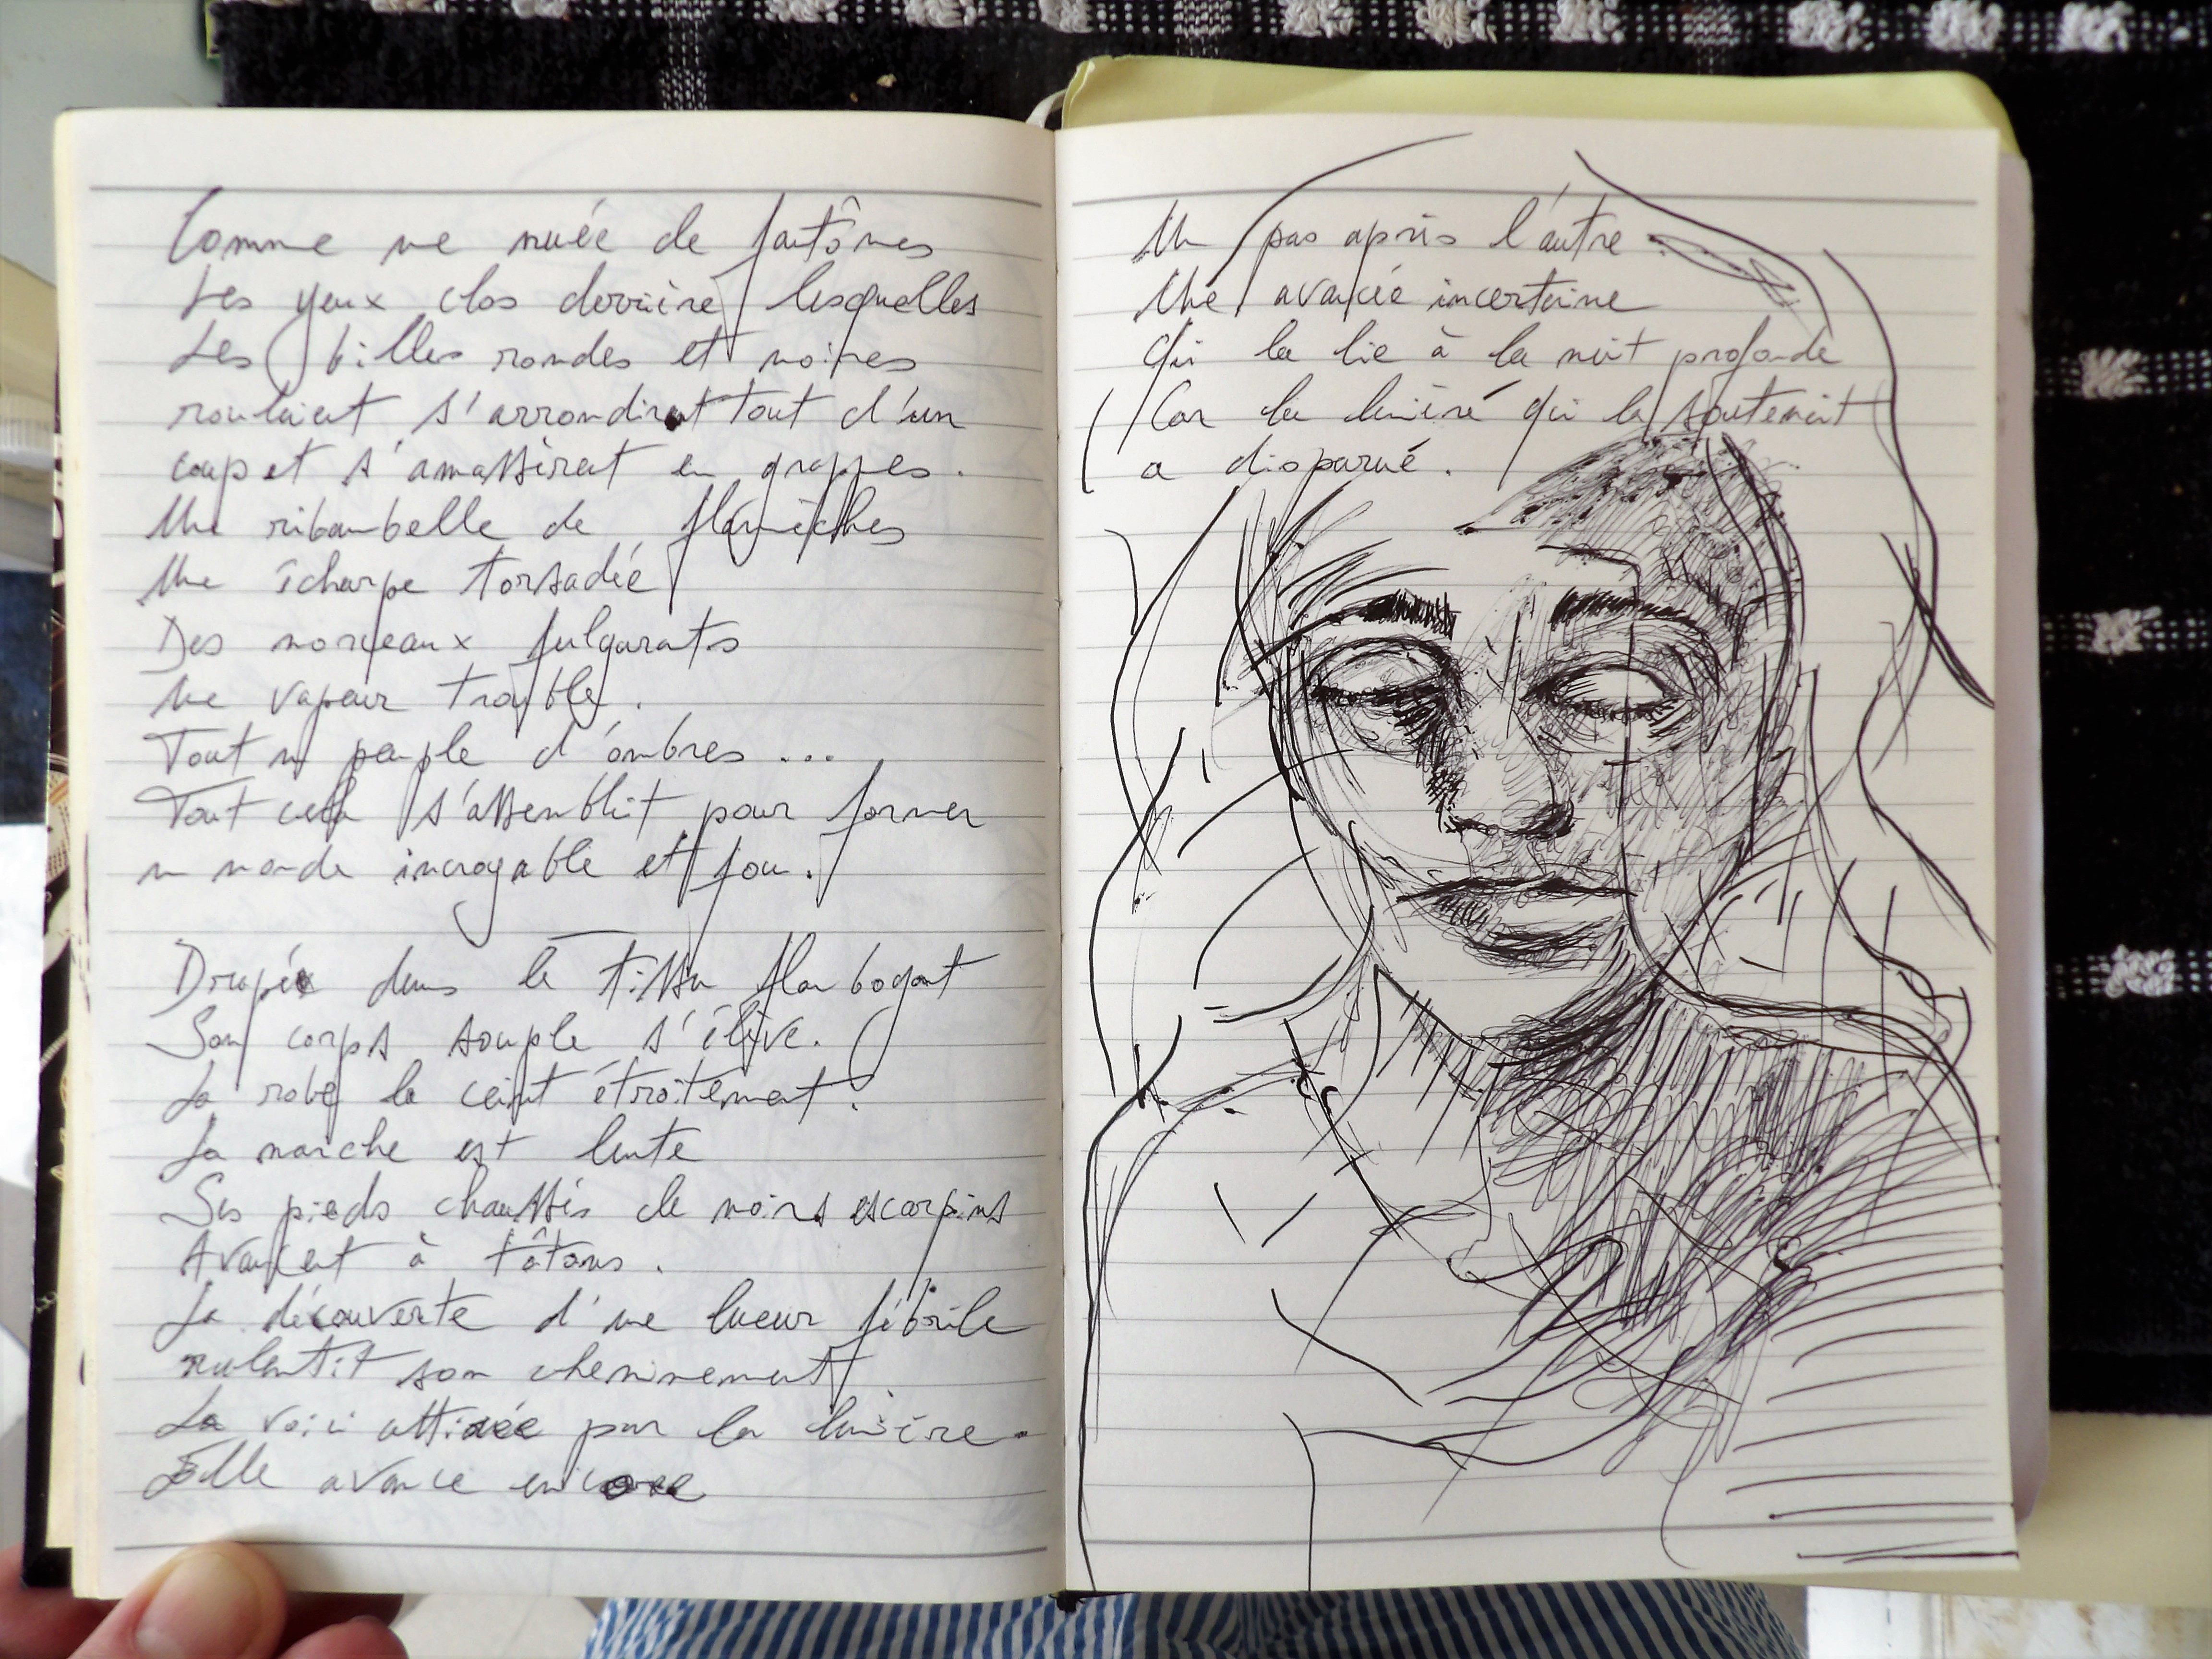 Comme une nuée de fantômes
Les yeux clos derrière lesquelles
Les billes rondes et noires
roulaient s'arrondirent tout d'un
coup et s'amassèrent en grappes.
Une ribambelle de flammèches
Une écharpe torsadée
Des morceaux fulgurants
Une vapeur trouble.
Tout un peuple d'ombres ...
Tout cela s'assemblait pour former
un monde incroyable et fou.
Drapée dans le tissu flamboyant
Son corps souple s'élève.
La robe la ceint étroitement.
La marche est lente
Ses pieds chaussés de noirs escarpins
Avancent à tâtons.
La découverte d'une lueur fébrile
ralentit son cheminement.
La voici attirée par la lumière.
Elle avance encore
Un pas après l'autre.
Une avancée incertaine
Qui la lie à la nuit profonde
Car la lumière qui la soutenait
a disparue.